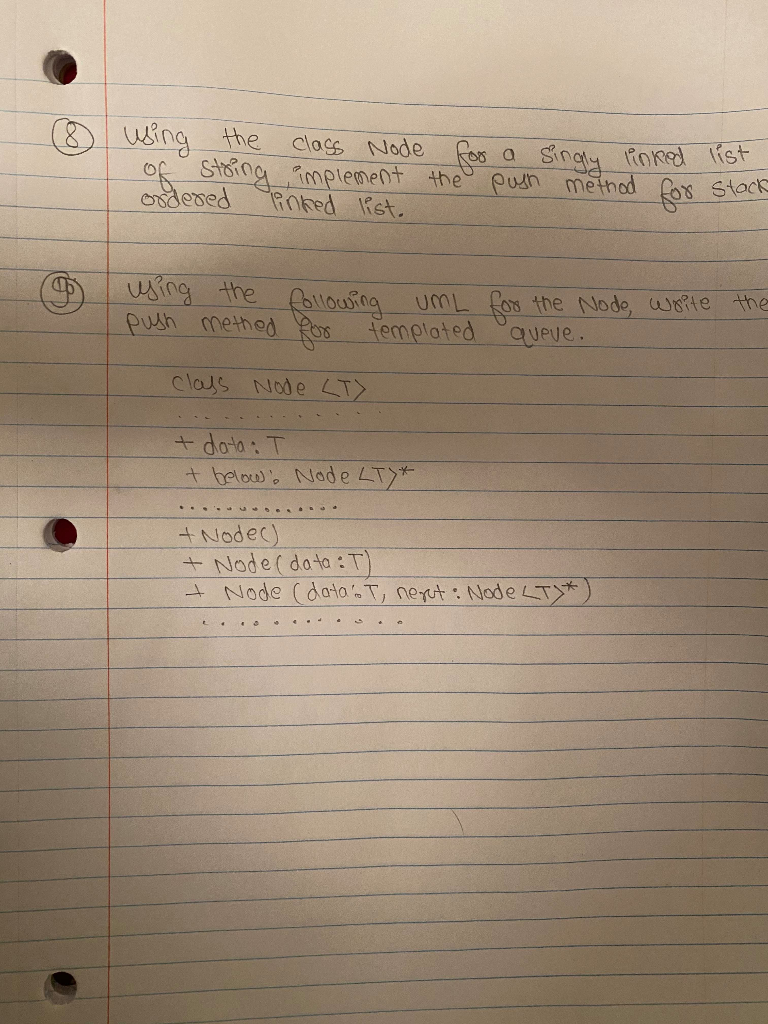 8 Using the class Node for a singly linked list
of string, implement the push method for stack
ordered linked list.
9 Using the following UML for the Node, write the
push method for templated queue.
Class Node <T>
............
+ data: T
+ below: Node <T>*
..............
+ Node()
+ Node(data: T)
+ Node (data: T, next: Node <T>*)
...........